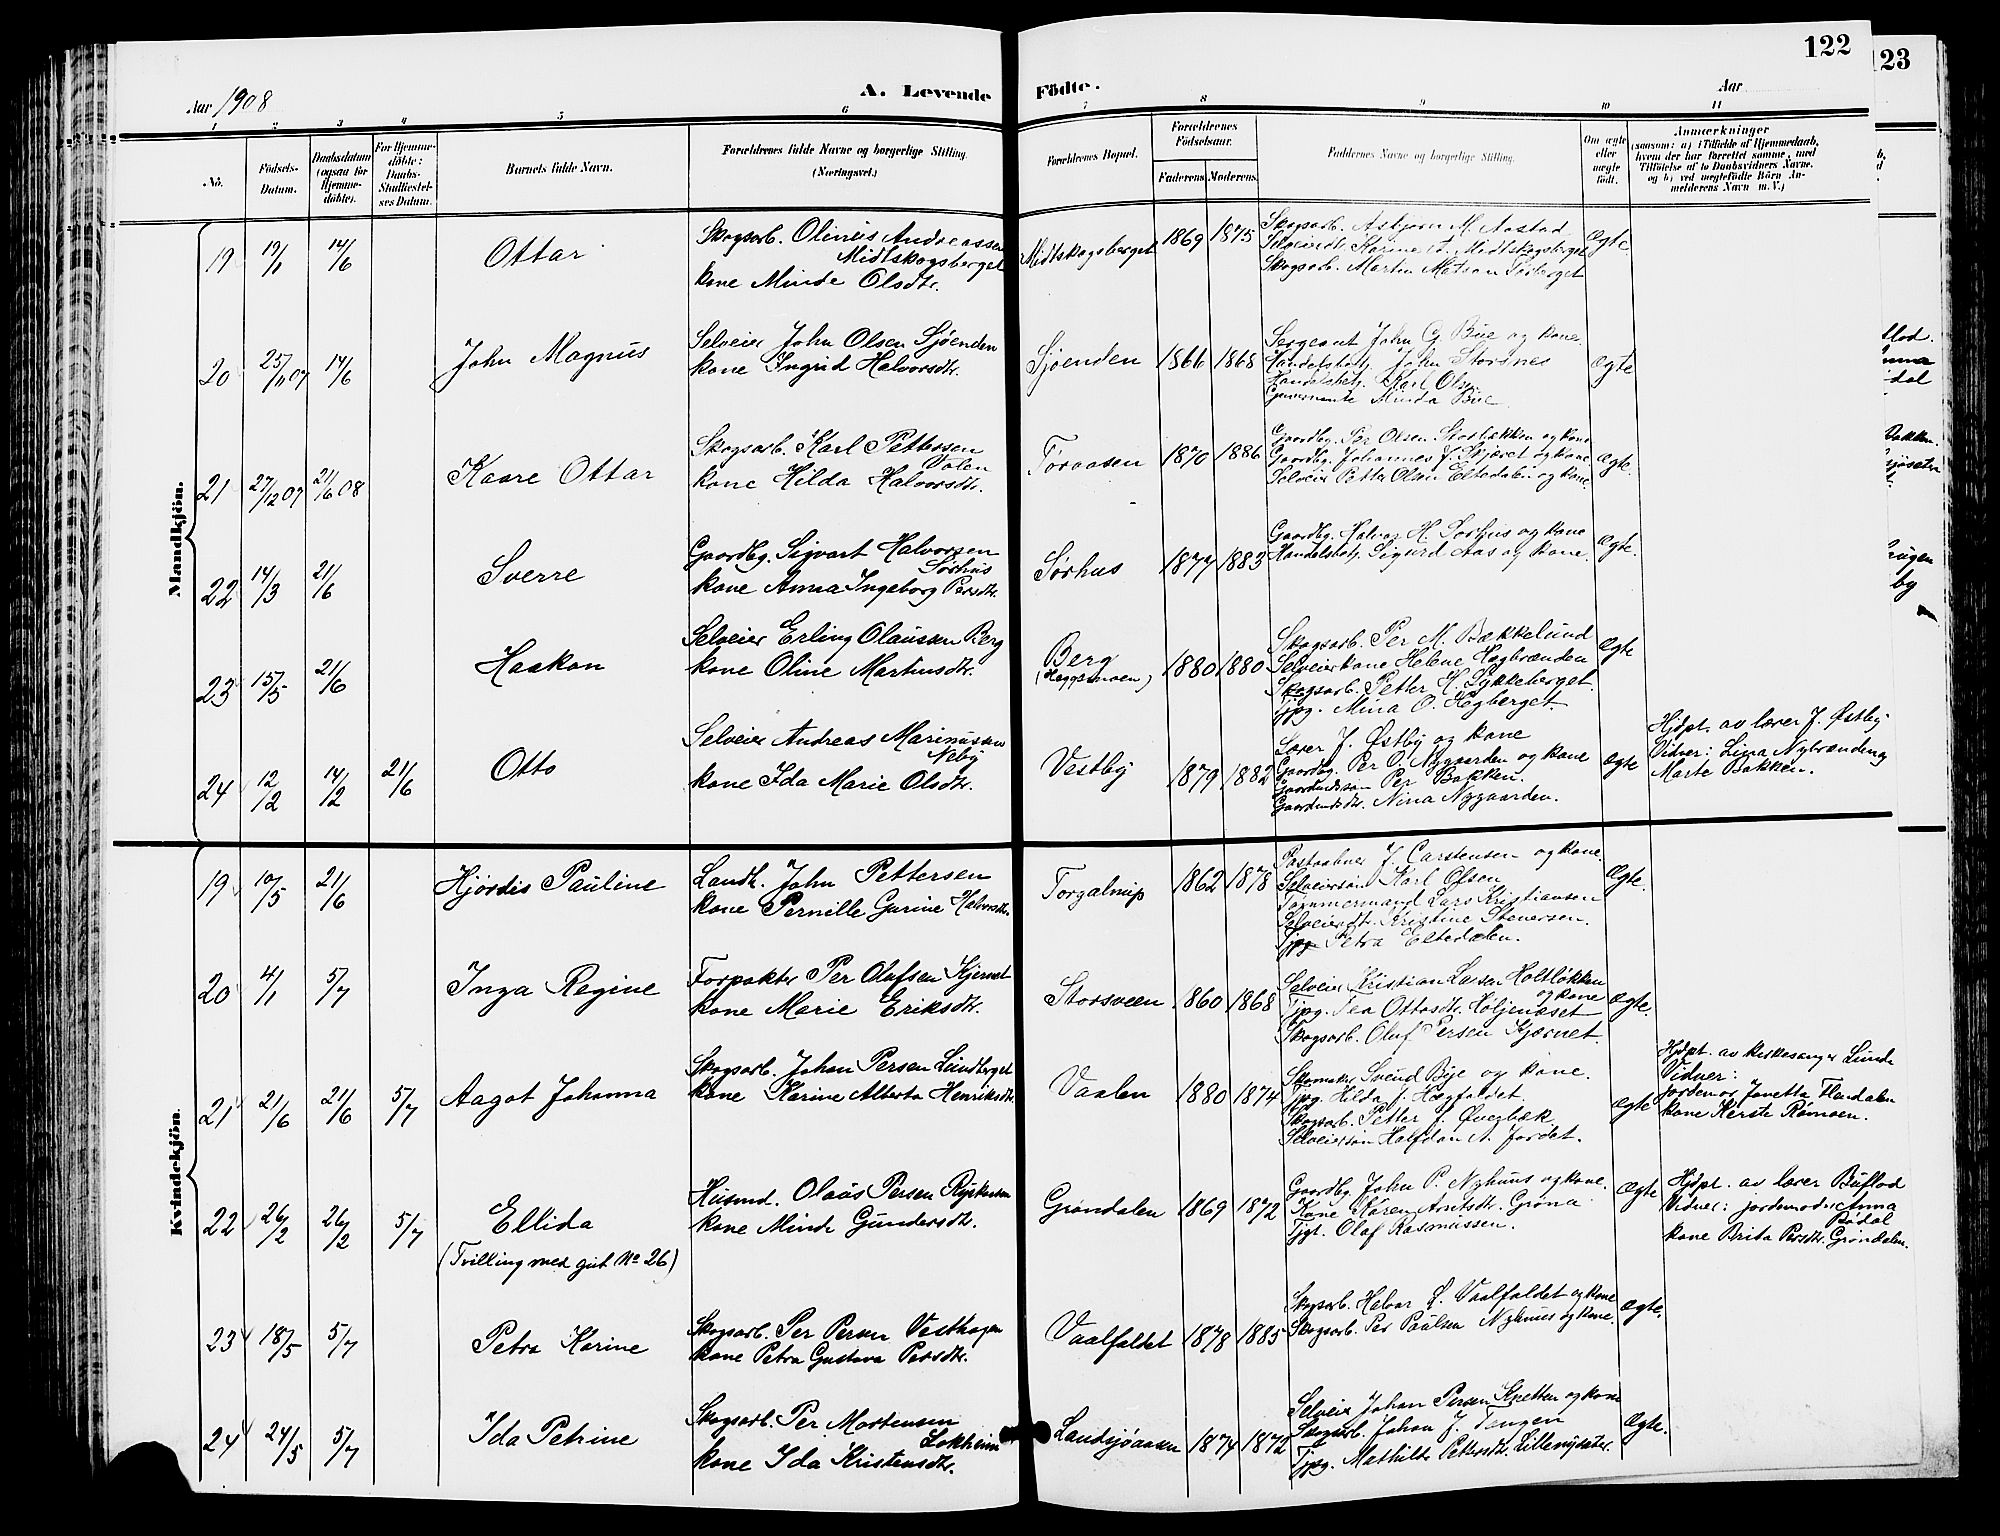 122
123
Aar 1908
A. Levende
Födte.
Aar
1 2 3 4 5 6 7 8 9 10 11
No.
Födsels-
Datum.
Daabsdatum
(ogsaa for
Hjemme-
döbte).
For Hjemme-
döbte:
Daabs-
Stadfæstel-
ses Datum.
Barnets fulde Navn.
Forældrenes fulde Navne og borgerlige Stilling.
(Næringsvei.)
Forældrenes Bopæl.
Forældrenes
Födselsaar.
Faderens Moderens
Faddernes Navne og borgerlige Stilling.
Om ægte
eller
uægte
født.
Anmærkninger
(saasom: a) i Tilfælde af Hjemmedaab,
hvem der har forrettet samme, med
Tilföielse af to Daabsvidners Navne.
og b) ved uægtefödte Börn An-
melderens Navn m. V.)
Mandkjön.
19 19/1 14/6 Ottar
Skogsarb. Olinus Andreassen
Midtskogsberget
kone Minde Olsdtr.
Midtskogsberget 1869 1875
Skogsarb. Asbjørn M. Aastad
Selveierdt. Karine A. Midtskogsberget
Skogsarb. Martin Matsen Sørberget
Ægte.
20 25/11 07 14/6 John Magnus
Selveier John Olsen Sjøenden
kone Ingrid Halvorsdtr.
Sjøenden 1866 1868
Sergeant John G. Bue og kone
Handelsbetj. John Storsnes
Handelsbetj. Karl Olsen
Minda Bue
Ægte
21 27/12 07 21/6 08 Kaare Ottar
Skogsarb. Karl Pettersen
kone Hilda Halvorsdtr.
Töraasen 1870 1886
Gaardbg. Per Olsen Storbækken og kone
Gaardbg. Johannes J. Skjæret og kone
Selveier Petter Olsen Eltedalen og kone.
Ægte.
22 14/3 21/6 Sverre
Gaardbg. Sigvart Halvorsen
Sørhus
kone Anna Ingeborg Persdtr.
Sørhus 1877 1883
Gaardbg. Halvor H. Sørhus og kone
Handelsbetj. Sigurd Aas og kone.
Ægte.
23 15/5 21/6 Haakon
Selveier Erling Olaussen Berg
kone Oline Martinsdtr.
Berg 1880 1880
Skogsarb. Per M. Bækkelund
Selveierkone Helene Hægbrænden
Skogsarb. Petter H. Lykkeberget.
Tjpg. Mina O. Hegberget.
Ægte
24 12/2 14/2 21/6 Otto
Selveier Andreas Marinussen
Neby
kone Ida Marie Olsdtr.
Vestby 1879 1882
Lærer J. Østby og kone
Gaardbg. Per O. Nygaarden og kone
Per Bakken.
Nina Nygaarden.
Ægte
Hjdpt. av lærer J. Østby
Vidner: Lina Nybrænden og
Marte Bakken.
Kvindekjön.
19 10/5 21/6 Hjördis Pauline
Landh. John Pettersen
kone Pernille Gurine Halvorsdtr.
Torgalmyp 1862 1878
Postaabner J. Carstensen og kone
Selveiersøn Karl Olsen
Tømmermand Lars Kristiansen
Selveierdtr. Kristine Stenersen.
Tjpg Petra Eltedalen.
Ægte.
20 4/1 5/7 Inga Regine
Forpakter Per Olufsen Kjernet
kone Marie Eriksdtr.
Storsveen 1860 1868
Selveier Kristian Larsen Holtløkken
og kone
Tjpg. Tea Ottosdtr. Höljenæset
Skogsarb. Oluf Persen Kjærnet.
Ægte.
21 21/6 21/6 5/7 Aagot Johanna
Skogsarb. Johan Persen Lundberget
kone Karine Alberta Henriksdtr.
Vaalen 1880 1874
Skomaker Svend Bye og kone.
Tjpg. Hilda J. Hægfaldet.
Skogsarb. Petter J. Øverbæk.
Selveiersøn Halfdan A. Jordet.
Ægte
Hjdpt. av kirkesanger Lunde
Vidner:
Jordemor Janetta Flendalen
kone Kerste Rømoen.
22 26/2 26/2 5/7 Ellida
(Tvilling med gut No 26)
Husmd. Olaus Persen
kone Minde Gundersdtr.
Grøndalen 1869 1872
Gaardbg. John P. Nyhuus og kone.
Kone Karen Arntsdtr. Grøna
Tjgt. Olaf Rasmussen.
Ægte
Hjdpt. av lærer Buflod
Vidner: jordemoder Anna
Bødal
kone Brita Persdtr. Grøndalen.
23 18/5 5/7 Petra Karine
Skogsarb. Per Persen Vesthagen
kone Petra Gustava Persdtr.
Vaalfaldet 1878 1885
Skogsarb. Halvor L. Vaalfaldet og kone
Skogsarb. Per Paulsen Nyhuus og kone.
Ægte.
24 24/5 5/7 Ida Petrine
Skogsarb. Per Mortensen
Lokheim
kone Ida Kristensdtr.
Landsjøaasen 1874 1872
Selveier Johan Persen Knetten og kone
Skogsarb. Johan J. Tengen
Tjpg. Mathilde Pettersdtr.
Ægte.